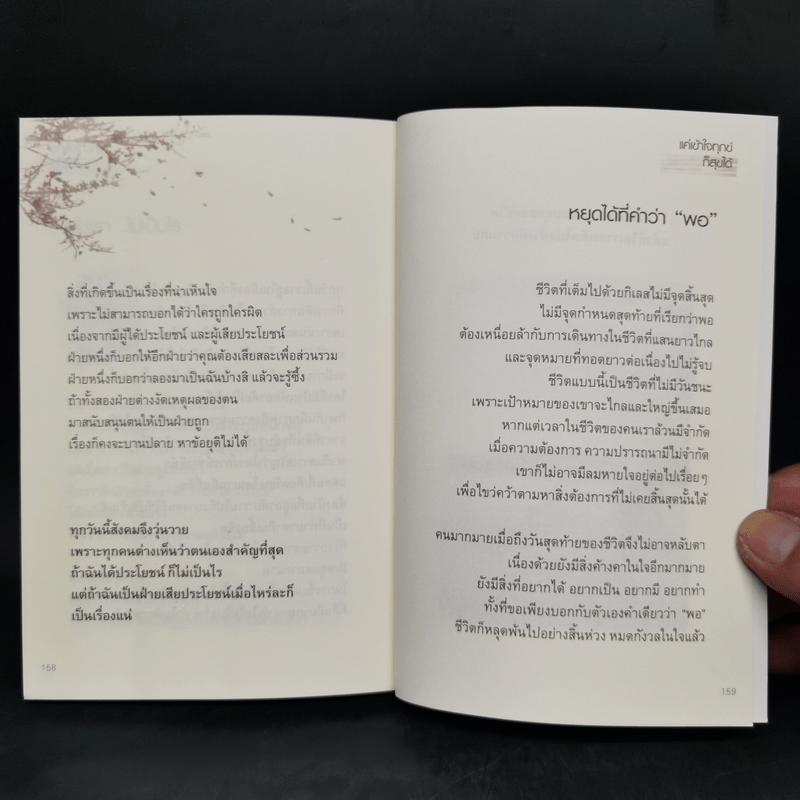 สิ่งที่เกิดขึ้นเป็นเรื่องที่น่าเห็นใจ
เพราะไม่สามารถบอกได้ว่าใครถูกใครผิด
เนื่องจากมีผู้ได้ประโยชน์ และผู้เสียประโยชน์
ฝ่ายหนึ่งก็บอกให้อีกฝ่ายว่าคุณต้องเสียสละเพื่อส่วนรวม
ฝ่ายหนึ่งก็บอกว่าลองมาเป็นฉันบ้างสิ แล้วจะรู้ซึ้ง
ถ้าทั้งสองฝ่ายต่างงัดเหตุผลของตน
มาสนับสนุนตนให้เป็นฝ่ายถูก
เรื่องก็คงจะบานปลาย หาข้อยุติไม่ได้
ทุกวันนี้สังคมจึงวุ่นวาย
เพราะทุกคนต่างเห็นว่าตนเองสำคัญที่สุด
ถ้าฉันได้ประโยชน์ ก็ไม่เป็นไร
แต่ถ้าฉันเป็นฝ่ายเสียประโยชน์เมื่อไหร่ละก็
เป็นเรื่องแน่
158
แค่เข้าใจทุกข์
ก็สุขได้
หยุดได้ที่คำว่า "พอ"
ชีวิตที่เต็มไปด้วยกิเลสไม่มีจุดสิ้นสุด
ไม่มีจุดกำหนดสุดท้ายที่เรียกว่าพอ
ต้องเหนื่อยล้ากับการเดินทางในชีวิตที่แสนยาวไกล
และจุดหมายที่ทอดยาวต่อเนื่องไปไม่รู้จบ
ชีวิตแบบนี้เป็นชีวิตที่ไม่มีวันชนะ
เพราะเป้าหมายของเขาจะไกลและใหญ่ขึ้นเสมอ
หากแต่เวลาในชีวิตของคนเราล้วนมีจำกัด
เมื่อความต้องการ ความปรารถนามีไม่จำกัด
เขาก็ไม่อาจมีลมหายใจอยู่ต่อไปเรื่อยๆ
เพื่อไขว่คว้าตามหาสิ่งต้องการที่ไม่เคยสิ้นสุดนั้นได้
คนมากมายเมื่อถึงวันสุดท้ายของชีวิตจึงไม่อาจหลับตา
เนื่องด้วยยังมีสิ่งค้างคาในใจอีกมากมาย
ยังมีสิ่งที่อยากได้ อยากเป็น อยากมี อยากทำ
ทั้งที่ขอเพียงบอกกับตัวเองคำเดียวว่า "พอ"
ชีวิตก็หลุดพ้นไปอย่างสิ้นห่วง หมดกังวลในใจแล้ว
159